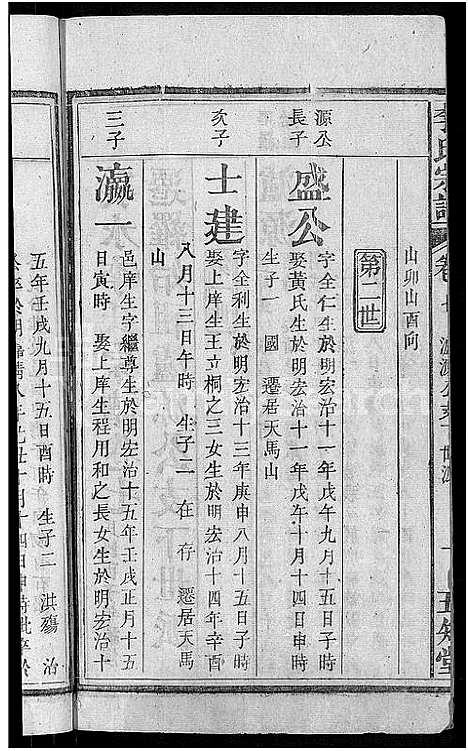 李氏宗譜
卷
五知堂
山卯山酉向
第二世
源公長子
盛公
字全仁生於明宏治十一年戊午九月十五日子時
娶黃氏生於明宏治十一年戊午十月十四日申時
生子一 國 遷居天馬山
次子
士建
字全利生於明宏治十三年庚申八月十五日子時
娶上庠生王立桐之三女生於明宏治十四年辛酉
八月十三日午時 生子二 在 存 遷居天馬
山
三子
瀛一
邑庠生字繼尊生於明宏治十五年壬戌正月十五
日寅時 娶上庠生程用和之長女生於明宏治十
五年壬戌九月十五日酉時 生子二 洪殤 治